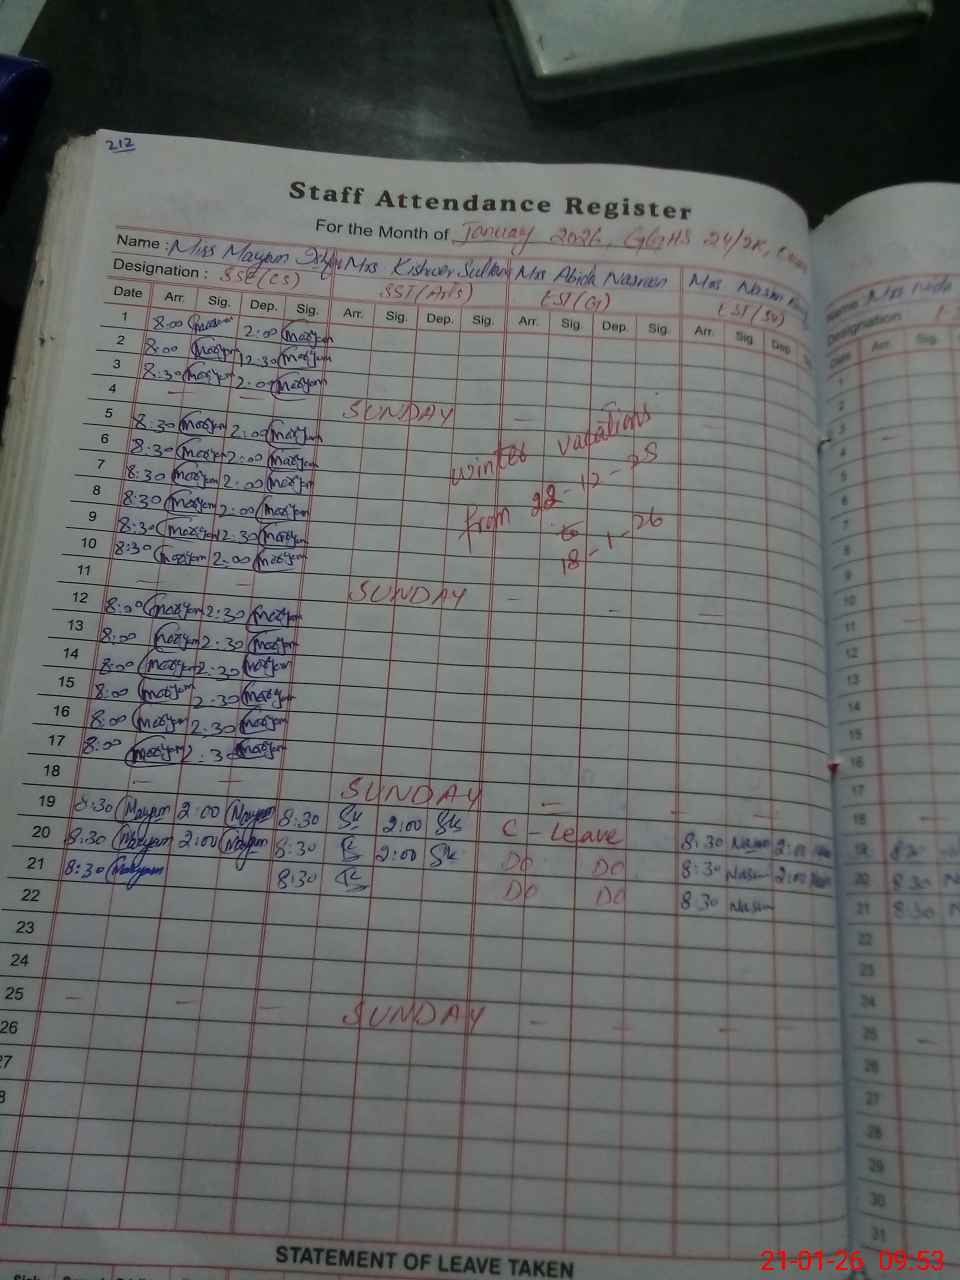 212
Staff Attendance Register
For the Month of January 2026, GGHS 24/2R,
Name : Miss Mayam Mrs Kishwer Sultan Mrs Abida Nasreen Mrs Nasim
Designation : SSE(CS) SST(Arts) EST(G) EST(
Date Arr. Sig. Dep. Sig. Arr. Sig. Dep. Sig. Arr. Sig. Dep. Sig. Arr. Sig Dep
1 8:00 Maryam 2:00 Maryam
2 8:00 Maryam 12:30 Maryam
3 8:30 Maryam 2:00 Maryam
4 — — SUNDAY —
5 8:30 Maryam 2:00 Maryam
6 8:30 Maryam 2:00 Maryam
7 8:30 Maryam 2:00 Maryam
8 8:30 Maryam 2:00 Maryam
9 8:30 Maryam 12:30 Maryam
10 8:30 Maryam 2:00 Maryam
winter vacations
from 22-12-25
to
18-1-26
11 — — SUNDAY — —
12 8:00 Maryam 2:30 Maryam
13 8:00 Maryam 2:30 Maryam
14 8:00 Maryam 2:30 Maryam
15 8:00 Maryam 2:30 Maryam
16 8:00 Maryam 2:30 Maryam
17 8:00 Maryam 2:30 Maryam
18 — — SUNDAY — — —
19 8:30 Mayam 2:00 Mayam 8:30 SK 2:00 SK C-Leave 8:30 Nasim 2:00
20 8:30 Mayam 2:00 Mayam 8:30 2:00 SK DO DO 8:30 Nasim 2:00
21 8:30 Mayam 8:30 DO DO 8:30 Nasim
22
23
24
25 — — — SUNDAY — — —
26
27
STATEMENT OF LEAVE TAKEN
Name : Mrs Nida
Designation
Date Arr. Sig.
1
2
3
4
5
6
7
8
9
10
11
12
13
14
15
16
17
18
19 8:30
20 8:30
21 8:30
22
23
24
25
26
27
28
29
30
31
21-01-26 09:53